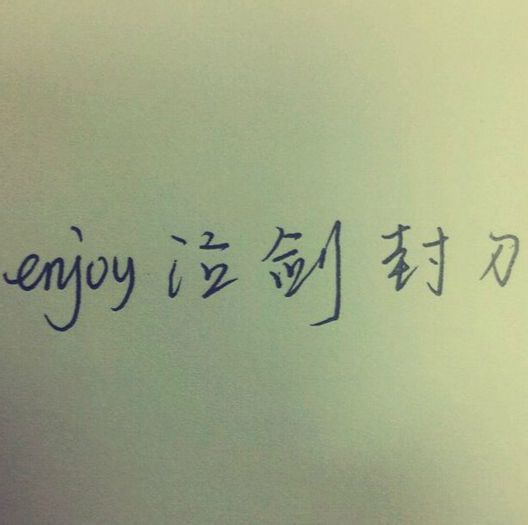 enjoy 泣剑封刀